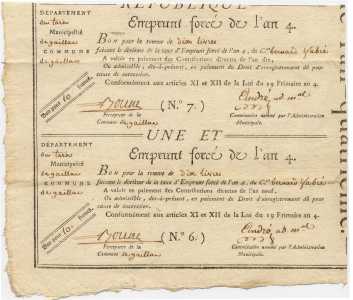 RÉPUBLIQUE
DÉPARTEMENT
du tarn
Municipalité
de gaillac
COMMUNE
de gaillac
Emprunt forcé de l'an 4.
BON pour la somme de dix livres
faisant le dixième de la taxe d'Emprunt forcé de l'an 4, du Cen bernard
A valoir en paiement des Contributions directes de l'an
Ou admissible, dès-à-présent, en paiement de Droit d'enregistrement dû pour
cause de succession.
Conformément aux articles XI et XII de la Loi du 19 Frimaire an 4.
Bon pour 10 francs.
(N.º 7.)
Percepteur de la
Commune de gaillac
Commissaire nommé par l'Administration
Municipale.
UNE ET
DÉPARTEMENT
du tarn
Municipalité
de gaillac
COMMUNE
de gaillac
Emprunt forcé de l'an 4.
BON pour la somme de dix livres
faisant le dixième de la taxe d'Emprunt forcé de l'an 4, du Cen bernard
A valoir en paiement des Contributions directes de l'an
Ou admissible, dès-à-présent, en paiement de Droit d'enregistrement dû pour
cause de succession.
Conformément aux articles XI et XII de la Loi du 19 Frimaire an 4.
Bon pour 10 francs.
(N.º 6.)
Percepteur de la
Commune de gaillac
Commissaire nommé par l'Administration
Municipale.